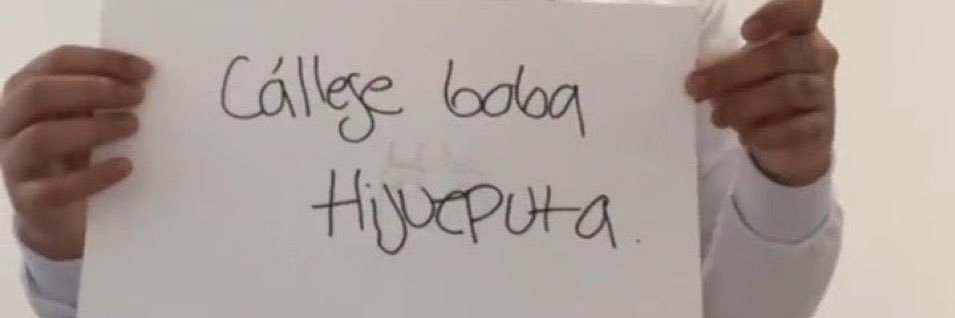 Cállese boba
Hijueputa.